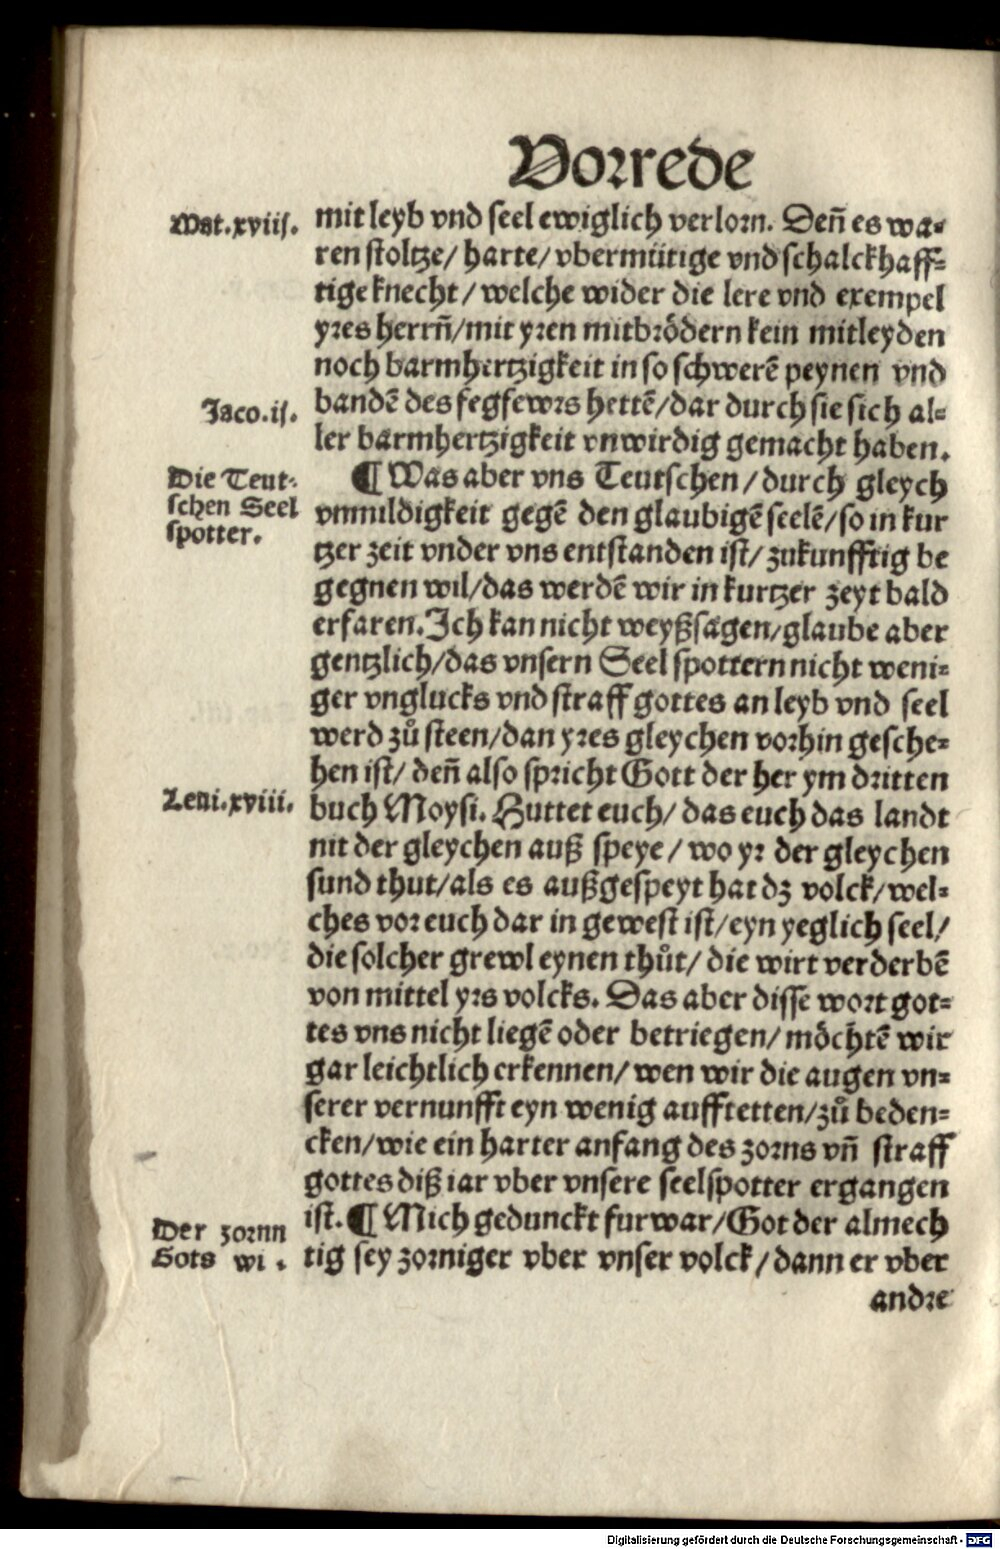 Vorrede
Mat.xviij.
mit leyb vnd seel ewiglich verlorn. Deñ es wa⸗
ren stoltze/ harte/ vbermütige vnd schalckhaff⸗
tige knecht/ welche wider die lere vnd exempel
yres herrñ/mit yren mitbrödern kein mitleyden
noch barmhertzigkeit in so schwerē peynen vnd
Jaco.ij.
bandē des fegfewrs hettē/dar durch sie sich al⸗
ler barmhertzigkeit vnwirdig gemacht haben.
Die Teut⸗
schen Seel
spotter.
¶ Was aber vns Teutschen/ durch gleych
vnmildigkeit gegē den glaubigē seelē/so in kur
tzer zeit vnder vns entstanden ist/ zukunfftig be
gegnen wil/das werdē wir in kurtzer zeyt bald
erfaren. Ich kan nicht weyßsagen/glaube aber
gentzlich/das vnsern Seel spottern nicht weni⸗
ger vnglucks vnd straff gottes an leyb vnd seel
werd zů steen/dan yres gleychen vorhin gesche⸗
hen ist/ deñ also spricht Gott der her ym dritten
Leui.xviii.
buch Moysi. Huttet euch/ das euch das landt
nit der gleychen auß speye/ wo yr der gleychen
sund thut/als es außgespeyt hat dz volck/wel⸗
ches vor euch dar in gewest ist/eyn yeglich seel/
die solcher grewl eynen thůt/ die wirt verderbē
von mittel yrs volcks. Das aber disse wort got⸗
tes vns nicht liegē oder betriegen/ möchtē wir
gar leichtlich erkennen/ wen wir die augen vn⸗
serer vernunfft eyn wenig aufftetten/zů beden⸗
cken/wie ein harter anfang des zorns vñ straff
gottes diß iar vber vnsere seelspotter ergangen
Der zornn
Gots wi .
ist. ¶ Mich gedunckt furwar/Got der almech
tig sey zorniger vber vnser volck/dann er vber
andre
Digitalisierung gefördert durch die Deutsche Forschungsgemeinschaft - DFG